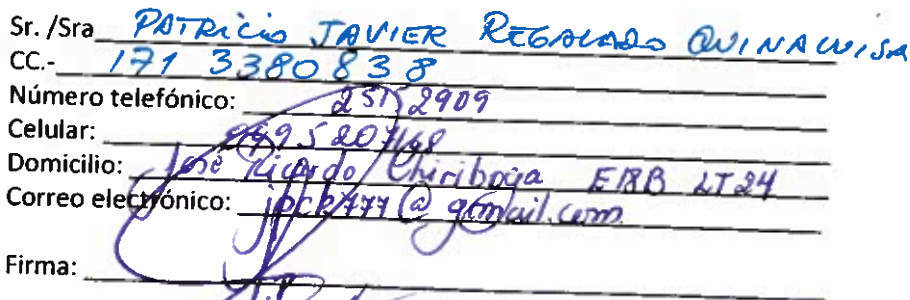 Sr. /Sra PATRICIO JAVIER REGALADO QUINALUISA
CC.- 171 3380838
Número telefónico: 2512909
Celular:
Domicilio: José Ricardo Chiriboga E18B LT24
Correo electrónico: @gmail.com
Firma: